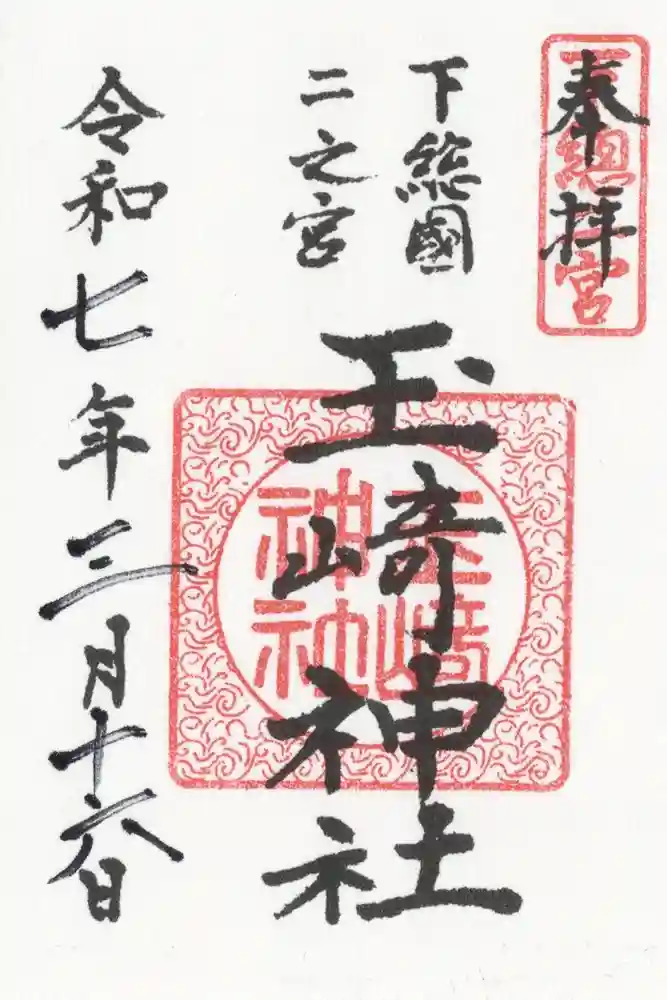 奉拝
下總二宮
下総國
二之宮
玉﨑神社
玉﨑神社
令和七年三月十六日